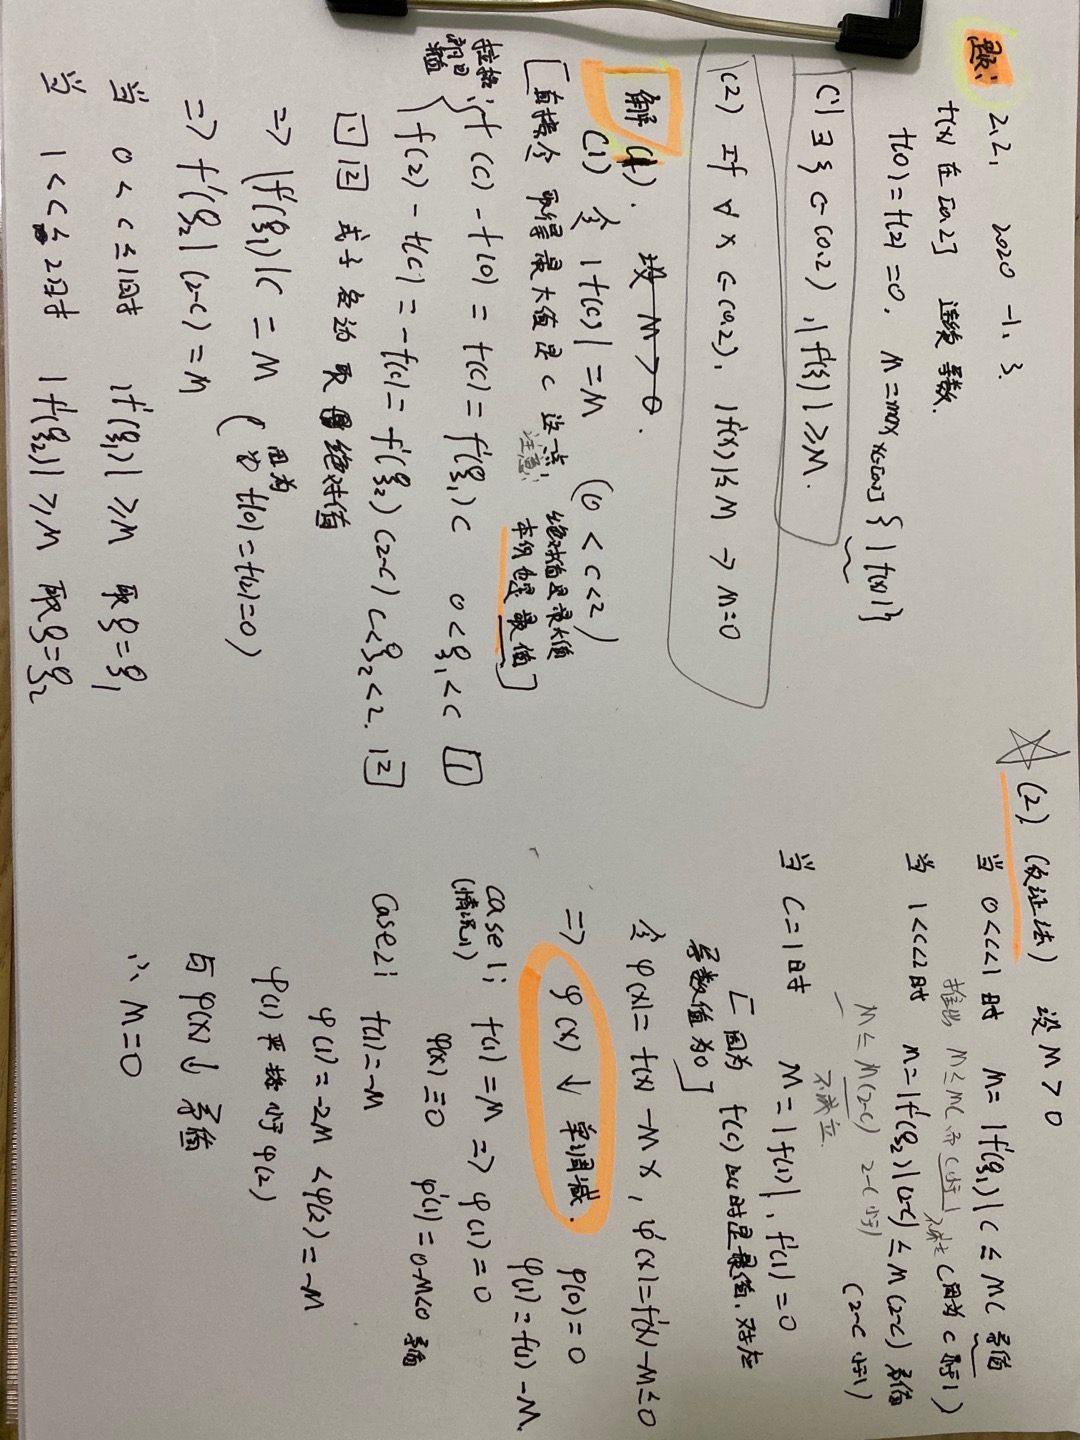 题: 2.2. 2020-1、3.
f(x) 在 [0,2] 连续导数.
f(0)=f(2)=0. M=max x∈[0,2] {|f(x)|}
(1) ∃ξ∈(0,2), |f'(ξ)|≥M.
(2) If ∀x∈(0,2), |f'(x)|≤M → M=0
解
设 M>0.
(1) 令 |f(c)|=M (0<c<2)
[直接令 取得最大值是 c 这一点, 注意: 绝对值是最大值
本身也是最值]
拉格朗日
f(c)-f(0)=f(c)=f'(ξ₁)c 0<ξ₁<c [1]
f(2)-f(c)=-f(c)=f'(ξ₂)(2-c) c<ξ₂<2. [2]
[1][2] 式子各边取绝对值
=> |f'(ξ₁)|c=M (因为 f(0)=f(2)=0)
=> f'(ξ₂)|(2-c)=M
当 0<c≤1时 |f'(ξ₁)|≥M 取ξ=ξ₁
当 1<c≤2时 |f'(ξ₂)|≥M 取ξ=ξ₂
☆ (2) (反证法) 设 M>0
当 0<c<1 时 M=|f'(ξ₁)|c≤Mc 矛盾
推出 M≤Mc 而c小于1 不成立 (因为 c 小于1)
当 1<c<2时 M=|f'(ξ₂)|(2-c)≤M(2-c) 矛盾
M≤M(2-c) 2-c小于1 (2-c 小于1)
不成立.
当 c=1时 M=|f(1)|, f'(1)=0
[因为 f(c) 此时是最值, 对应
导数值为0]
令 φ(x)=f(x)-Mx, φ'(x)=f'(x)-M≤0
=> φ(x)↓ 单调减. φ(0)=0
φ(1)=f(1)-M.
case 1: f(1)=M => φ(1)=0
(情况1) φ(x)≡0 φ'(1)=0-M<0 矛盾
Case2: f(1)=-M
φ(1)=-2M<φ(2)=-M
φ(1) 严格小于 φ(2)
与 φ(x)↓ 矛盾
∴ M=0